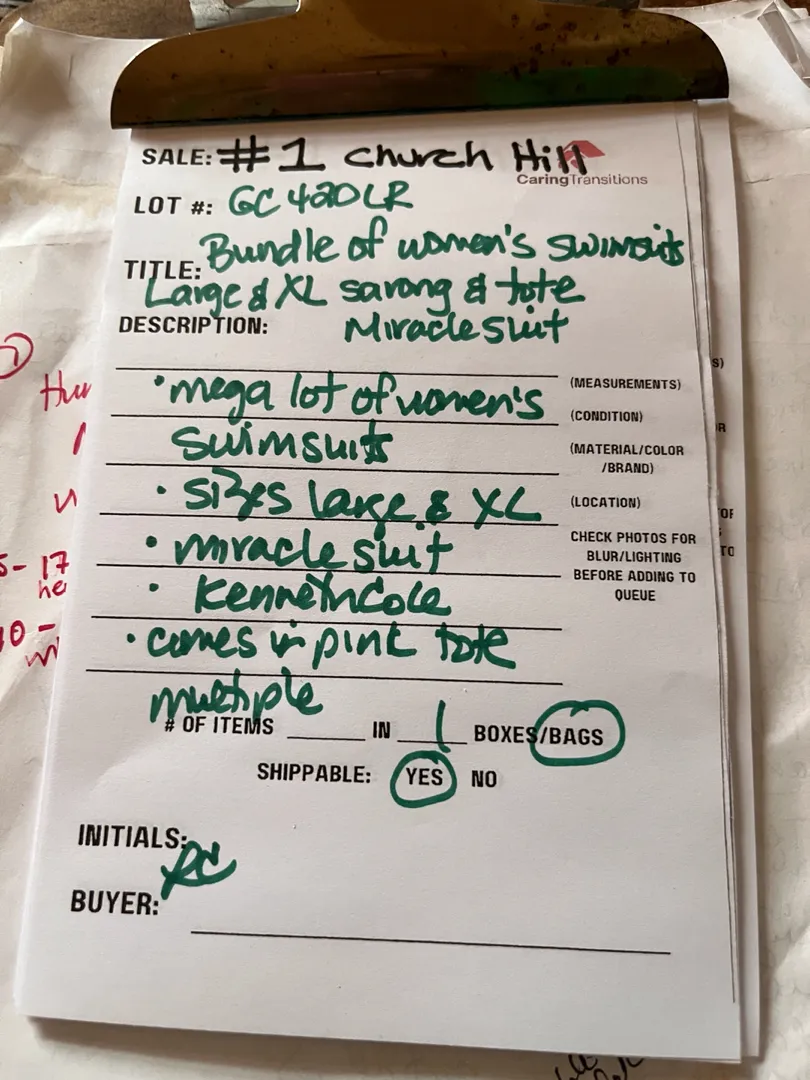 SALE: #1 Church Hill
CaringTransitions
LOT #: GC420LR
TITLE: Bundle of women's swimsuits
Large & XL sarong & tote
DESCRIPTION: Miraclesuit
• mega lot of women's
swimsuits
• sizes large & XL
• miraclesuit
• Kenneth Cole
• comes in pink tote
(MEASUREMENTS)
(CONDITION)
(MATERIAL/COLOR
/BRAND)
(LOCATION)
CHECK PHOTOS FOR
BLUR/LIGHTING
BEFORE ADDING TO
QUEUE
multiple
# OF ITEMS ______ IN __1__ BOXES/BAGS
SHIPPABLE: YES NO
INITIALS: RC
BUYER: